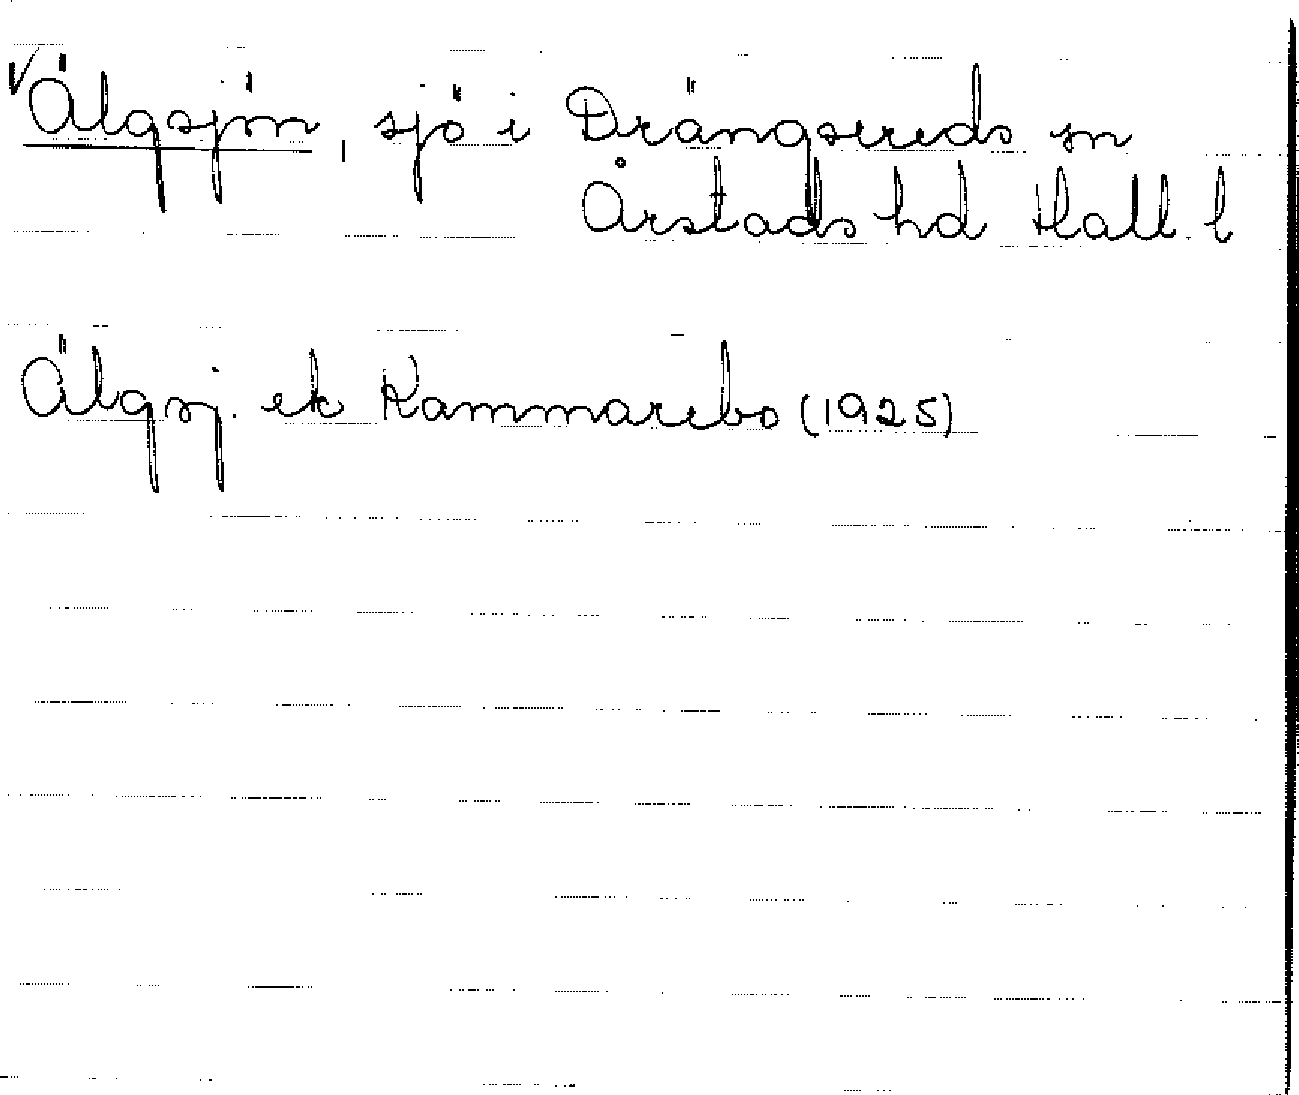 Älgsjön, sjö i Drängsereds sn
Årstads hd Hall. l
Älgsj. ek Kammarebo (1925)